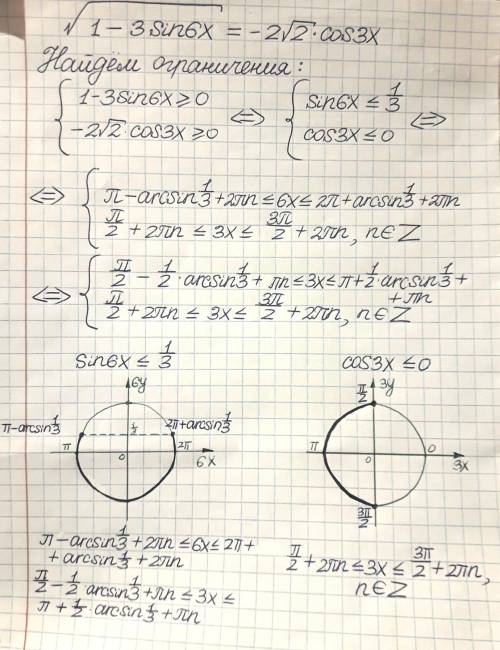 √(1-3sin6x) = -2√2·cos3x
Найдём ограничения:
{ 1-3sin6x ≥ 0
-2√2·cos3x ≥ 0 <=> { sin6x ≤ 1/3
cos3x ≤ 0 <=>
<=> { π-arcsin 1/3 + 2πn ≤ 6x ≤ 2π + arcsin 1/3 + 2πn
π/2 + 2πn ≤ 3x ≤ 3π/2 + 2πn, n∈Z
<=> { π/2 - 1/2·arcsin 1/3 + πn ≤ 3x ≤ π + 1/2·arcsin 1/3 +
+ πn
π/2 + 2πn ≤ 3x ≤ 3π/2 + 2πn, n∈Z
sin6x ≤ 1/3
6y
π-arcsin 1/3
2π+arcsin 1/3
π
0
2π
6x
cos3x ≤ 0
π/2
3y
π
0
0
3x
3π/2
π-arcsin 1/3 + 2πn ≤ 6x ≤ 2π +
+ arcsin 1/3 + 2πn
π/2 - 1/2 arcsin 1/3 + πn ≤ 3x ≤
π + 1/2·arcsin 1/3 + πn
π/2 + 2πn ≤ 3x ≤ 3π/2 + 2πn,
n∈Z